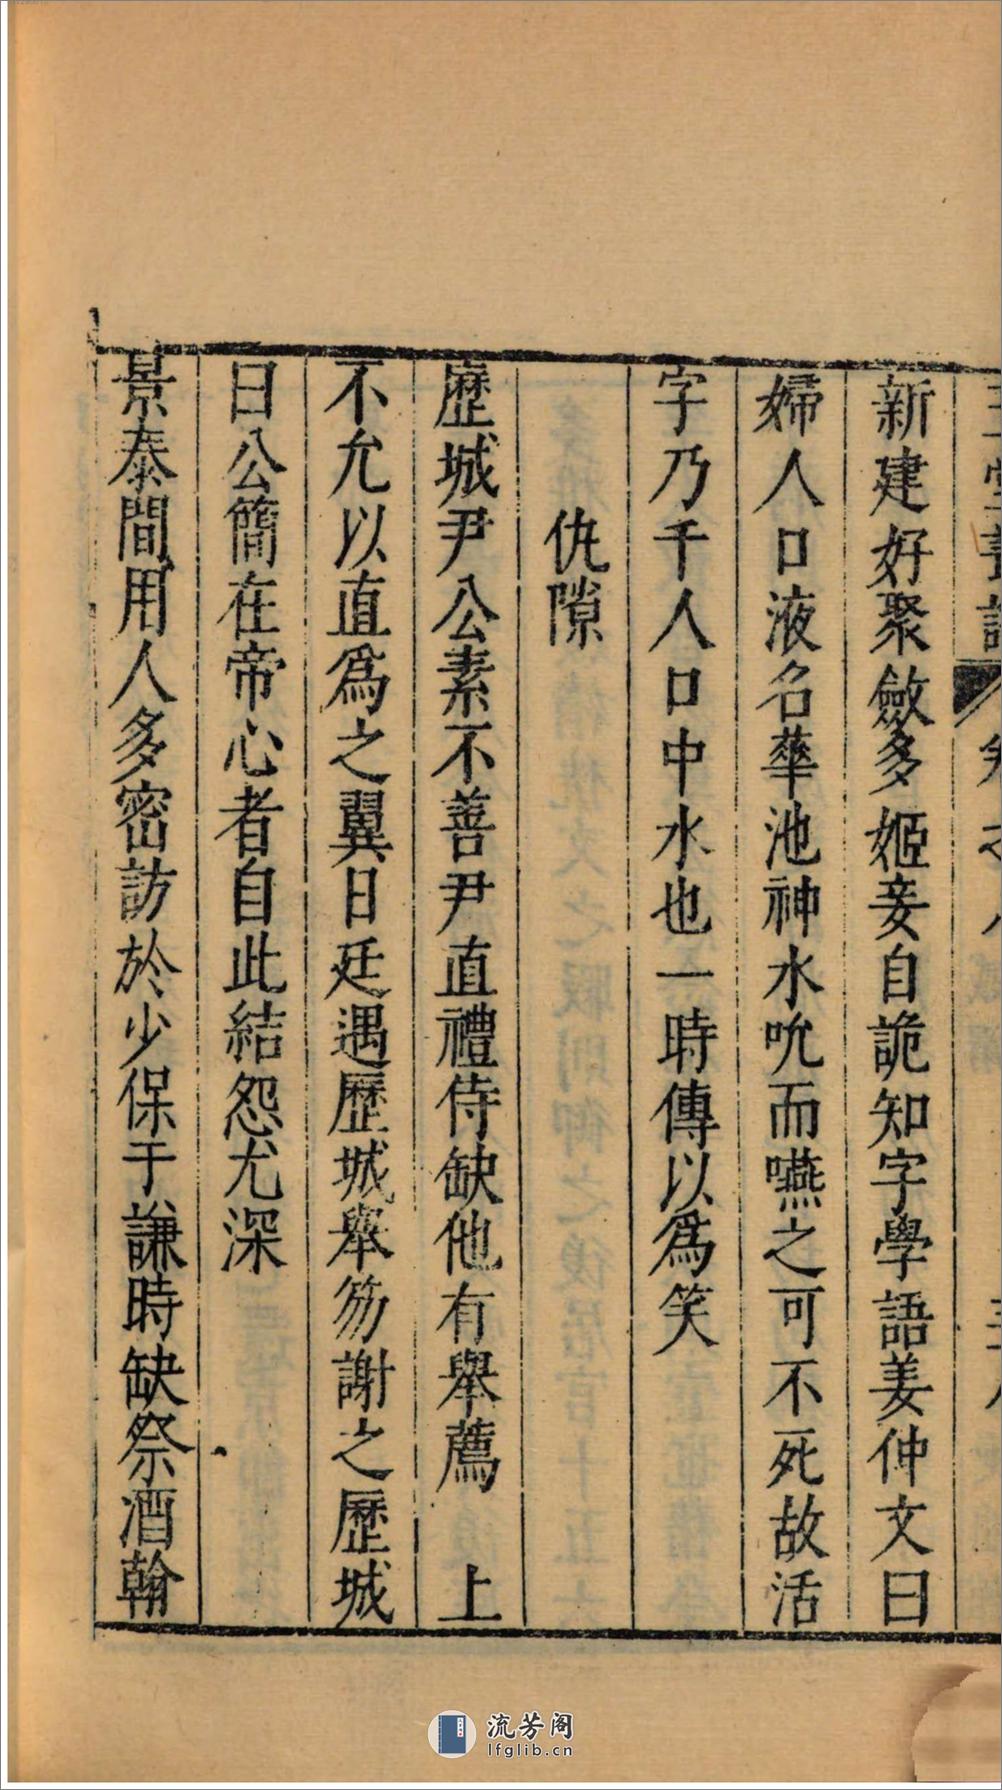 新建好聚斂多姬妾自詭知字學語姜仲文曰
婦人口液名華池神水吮而嚥之可不死故活
字乃千人口中水也一時傳以爲笑
仇隙
歷城尹公素不善尹直禮侍缺他有舉薦　上
不允以直爲之翼日廷遇歷城舉笏謝之歷城
曰公簡在帝心者自此結怨尤深
景泰間用人多密訪於少保于謙時缺祭酒翰
流芳阁
lfglib.cn